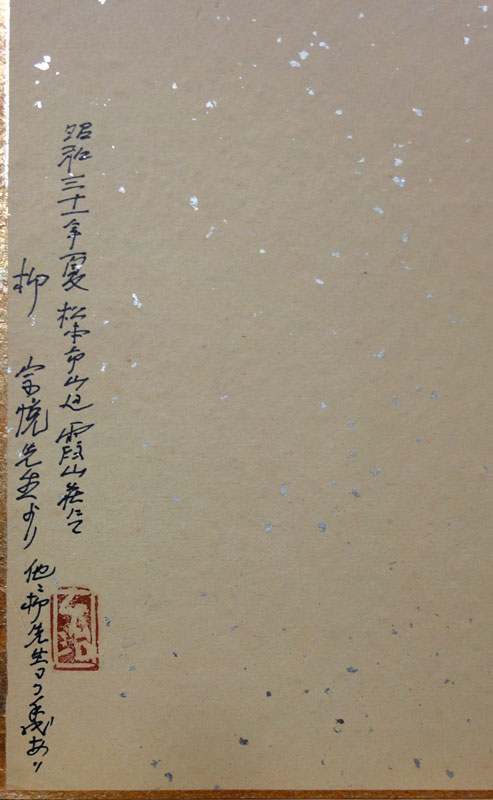 昭和三十一年夏 松本市山辺 霞山荘にて
柳 宗悦先生より 他ニ柳先生ヨリ あり